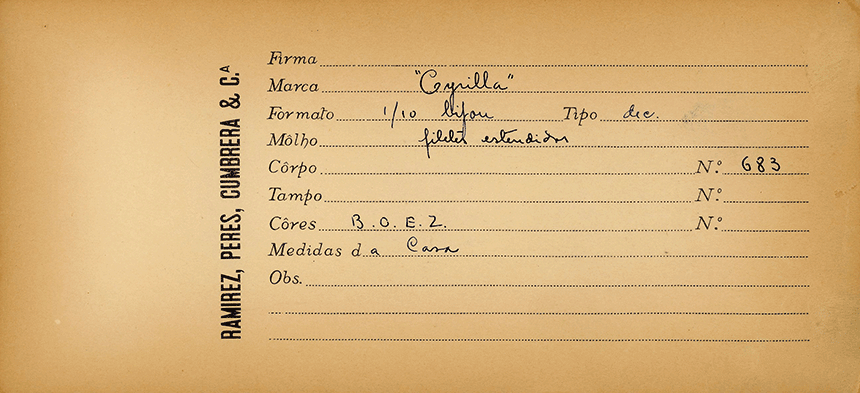 RAMIREZ, PERES, CUMBRERA & C.ª
Firma
Marca "Cyrilla"
Formato 1/10 bijou Tipo dec.
Môlho filetes estendidos
Côrpo N.º 683
Tampo N.º
Côres B. O. E. Z. N.º
Medidas da Casa
Obs.